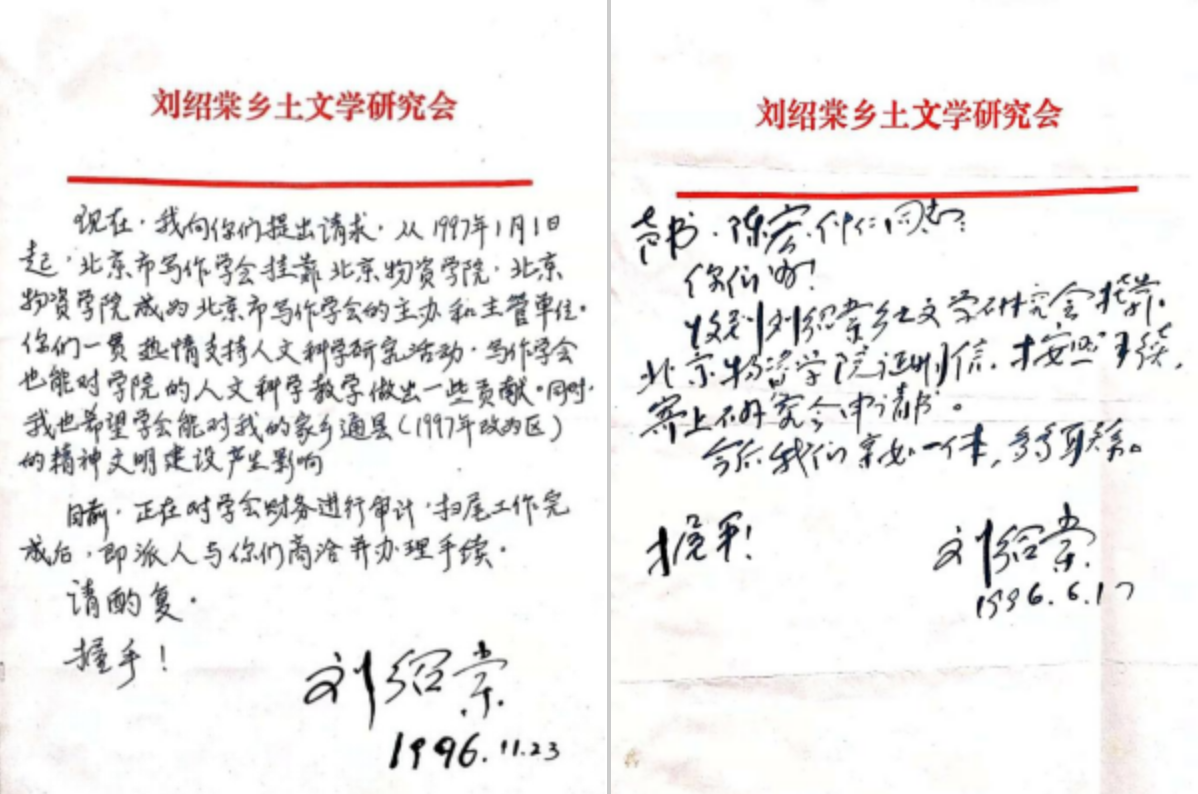 刘绍棠乡土文学研究会
现在，我向你们提出请求，从1997年1月1日
起，北京市写作学会挂靠北京物资学院，北京
物资学院成为北京市写作学会的主办和主管单位。
你们一贯热情支持人文科学研究活动，写作学会
也能对学院的人文科学教学做出一些贡献。同时，
我也希望学会能对我的家乡通县（1997年改为区）
的精神文明建设产生影响
目前，正在对学会财务进行审计，扫尾工作完
成后，即派人与你们商洽并办理手续。
请酌复。
握手！
刘绍棠
1996.11.23
刘绍棠乡土文学研究会
书、陈宏、仲仁同志：
你们好！
收到刘绍棠乡土文学研究会挂靠
北京物资学院证明信，按照手续，
寄上研究会申请书。
今后我们亲如一体，多多联络。
握手！
刘绍棠
1996.6.17